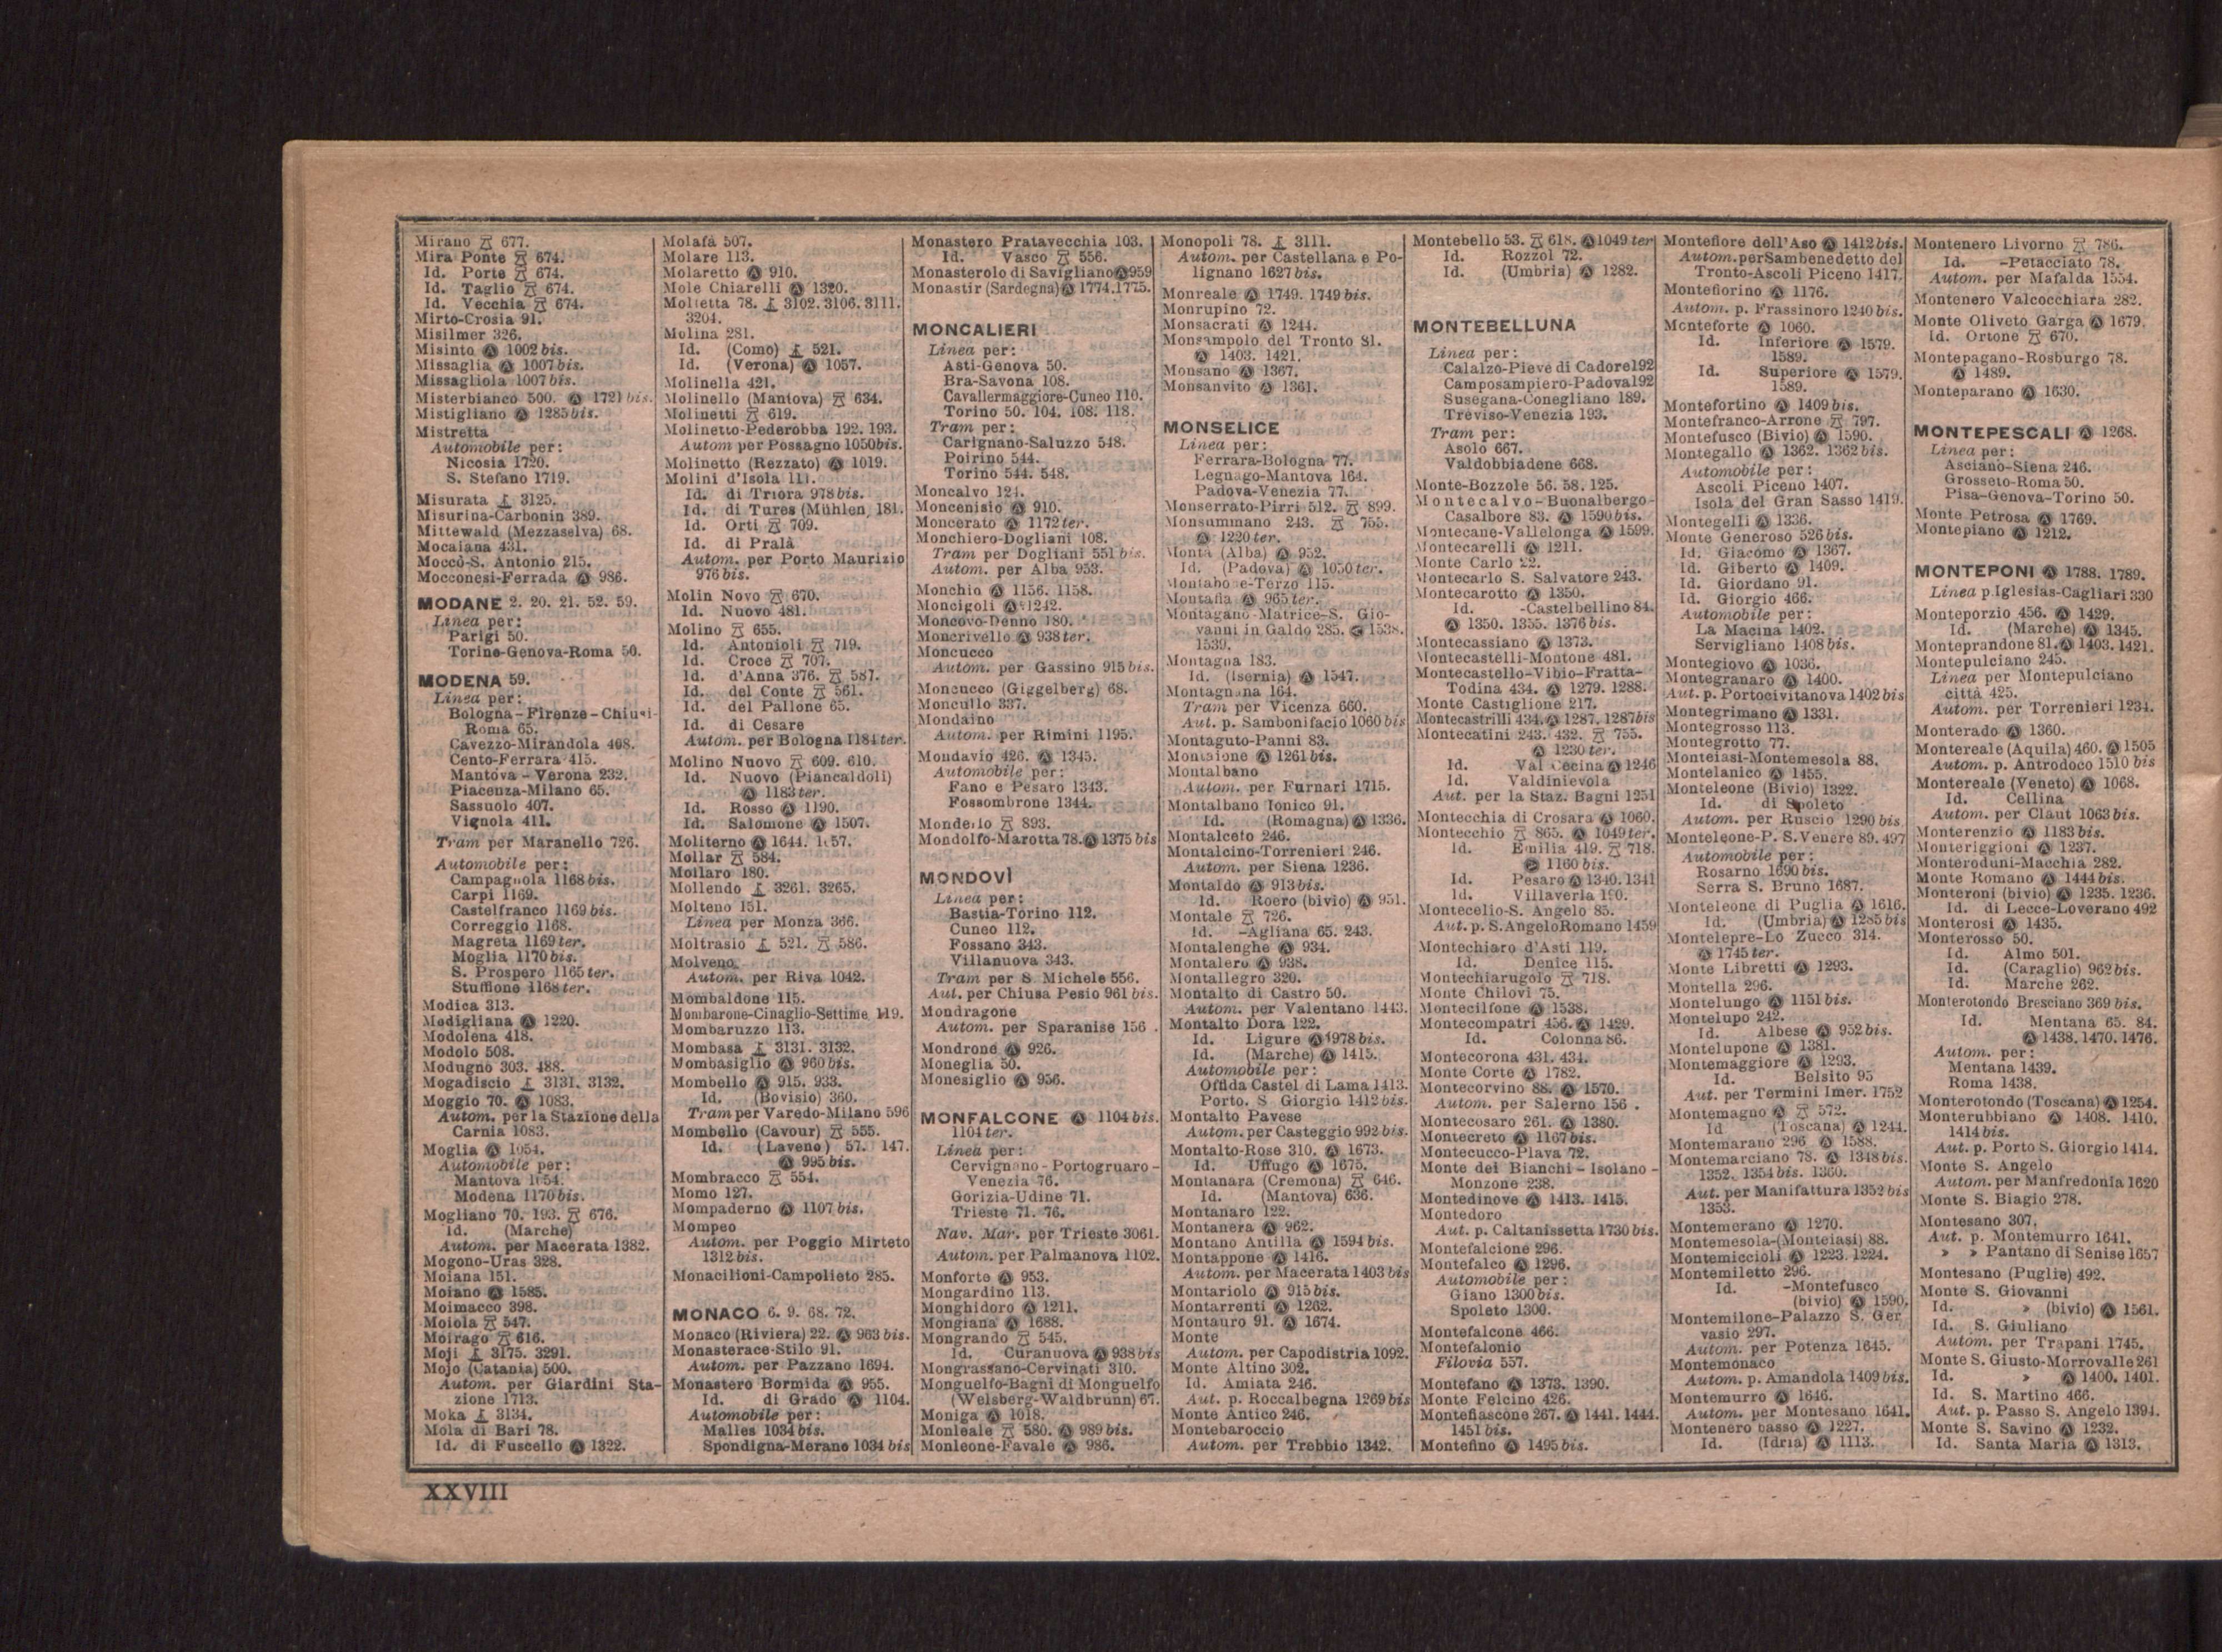 Mirano 677.
Mira Ponte 674.
Id. Porte 674.
Id. Taglio 674.
Id. Vecchia 674.
Mirto-Crosia 91.
Misilmer 326.
Misinto Ⓐ 1002 bis.
Missaglia Ⓐ 1007 bis.
Missagliola 1007 bis.
Misterbianco 500. Ⓐ 1721 bis.
Mistigliano Ⓐ 1285 bis.
Mistretta
Automobile per:
Nicosia 1720.
S. Stefano 1719.
Misurata 3125.
Misurina-Carbonin 389.
Mittewald (Mezzaselva) 68.
Mocaiana 431.
Moccò-S. Antonio 215.
Mocconesi-Ferrada Ⓐ 986.
MODANE 2. 20. 21. 52. 59.
Linea per:
Parigi 50.
Torino-Genova-Roma 50.
MODENA 59.
Linea per:
Bologna-Firenze-Chiusi-
Roma 65.
Cavezzo-Mirandola 408.
Cento-Ferrara 415.
Mantova-Verona 232.
Piacenza-Milano 65.
Sassuolo 407.
Vignola 411.
Tram per Maranello 726.
Automobile per:
Campagnola 1168 bis.
Carpi 1169.
Castelfranco 1169 bis.
Correggio 1168.
Magreta 1169 ter.
Moglia 1170 bis.
S. Prospero 1165 ter.
Stuffione 1168 ter.
Modica 313.
Modigliana Ⓐ 1220.
Modolena 418.
Modolo 508.
Modugno 303. 488.
Mogadiscio 3131. 3132.
Moggio 70. Ⓐ 1083.
Autom. per la Stazione della
Carnia 1083.
Moglia Ⓐ 1054.
Automobile per:
Mantova 1054.
Modena 1170 bis.
Mogliano 70. 193. 676.
Id. (Marche)
Autom. per Macerata 1382.
Mogono-Uras 328.
Moiana 151.
Moiano Ⓐ 1585.
Moimacco 398.
Moiola 547.
Moirago 616.
Moji 3175. 3291.
Mojo (Catania) 500.
Autom. per Giardini Sta-
zione 1713.
Moka 3134.
Mola di Bari 78.
Id. di Fuscello Ⓐ 1322.
Molafà 507.
Molare 113.
Molaretto Ⓐ 910.
Mole Chiarelli Ⓐ 1320.
Molfetta 78. 3102. 3106. 3111.
3204.
Molina 281.
Id. (Como) 521.
Id. (Verona) Ⓐ 1057.
Molinella 421.
Molinello (Mantova) 634.
Molinetti 619.
Molinetto-Pederobba 192. 193.
Autom per Possagno 1050 bis.
Molinetto (Rezzato) Ⓐ 1019.
Molini d'Isola 111.
Id. di Triora 978 bis.
Id. di Tures (Mühlen) 181.
Id. Orti 709.
Id. di Pralà
Autom. per Porto Maurizio
976 bis.
Molin Novo 670.
Id. Nuovo 481.
Molino 655.
Id. Antonioli 719.
Id. Croce 707.
Id. d'Anna 376. 587.
Id. del Conte 561.
Id. del Pallone 65.
Id. di Cesare
Autom. per Bologna 1184 ter.
Molino Nuovo 609. 610.
Id. Nuovo (Piancaldoli)
Ⓐ 1183 ter.
Id. Rosso Ⓐ 1190.
Id. Salomone Ⓐ 1507.
Moliterno Ⓐ 1644. 1657.
Mollar 584.
Mollaro 180.
Mollendo 3261. 3265.
Molteno 151.
Linea per Monza 366.
Moltrasio 521. 586.
Molveno
Autom. per Riva 1042.
Mombaldone 115.
Mombarone-Cinaglio-Settime 119.
Mombaruzzo 113.
Mombasa 3131. 3132.
Mombasiglio Ⓐ 960 bis.
Mombello Ⓐ 915. 933.
Id. (Bovisio) 360.
Tram per Varedo-Milano 596
Mombello (Cavour) 555.
Id. (Laveno) 57. 147.
Ⓐ 995 bis.
Mombracco 554.
Momo 127.
Mompaderno Ⓐ 1107 bis.
Mompeo
Autom. per Poggio Mirteto
1312 bis.
Monacilioni-Campolieto 285.
MONACO 6. 9. 68. 72.
Monaco (Riviera) 22. Ⓐ 963 bis.
Monasterace-Stilo 91.
Autom. per Pazzano 1694.
Monastero Bormida Ⓐ 955.
Id. di Grado Ⓐ 1104.
Automobile per:
Malles 1034 bis.
Spondigna-Merano 1034 bis
Monastero Pratavecchia 103.
Id. Vasco 556.
Monasterolo di Savigliano Ⓐ 959
Monastir (Sardegna) Ⓐ 1774. 1775.
MONCALIERI
Linea per:
Asti-Genova 50.
Bra-Savona 108.
Cavallermaggiore-Cuneo 110.
Torino 50. 104. 108. 118.
Tram per:
Carignano-Saluzzo 548.
Poirino 544.
Torino 544. 548.
Moncalvo 124.
Moncenisio Ⓐ 910.
Moncerato Ⓐ 1172 ter.
Monchiero-Dogliani 108.
Tram per Dogliani 551 bis.
Autom. per Alba 953.
Monchio Ⓐ 1156. 1158.
Moncigoli Ⓐ 1242.
Moncovo-Denno 180.
Moncrivello Ⓐ 938 ter.
Moncucco
Autom. per Gassino 915 bis.
Moncucco (Giggelberg) 68.
Moncullo 337.
Mondaino
Autom. per Rimini 1195.
Mondavio 426. Ⓐ 1345.
Automobile per:
Fano e Pesaro 1343.
Fossombrone 1344.
Mondello 893.
Mondolfo-Marotta 78. Ⓐ 1375 bis
MONDOVÌ
Linea per:
Bastia-Torino 112.
Cuneo 112.
Fossano 343.
Villanuova 343.
Tram per S. Michele 556.
Aut. per Chiusa Pesio 961 bis.
Mondragone
Autom. per Sparanise 156 .
Mondrone Ⓐ 926.
Moneglia 50.
Monesiglio Ⓐ 956.
MONFALCONE Ⓐ 1104 bis.
1104 ter.
Linea per:
Cervignano-Portogruaro-
Venezia 76.
Gorizia-Udine 71.
Trieste 71. 76.
Nav. Mar. per Trieste 3061.
Autom. per Palmanova 1102.
Monforte Ⓐ 953.
Mongardino 113.
Monghidoro Ⓐ 1211.
Mongiana Ⓐ 1688.
Mongrando 545.
Id. Curanuova Ⓐ 938 bis
Mongrassano-Cervinati 310.
Monguelfo-Bagni di Monguelfo
(Welsberg-Waldbrunn) 67.
Moniga Ⓐ 1018.
Monleale 580. Ⓐ 989 bis.
Monleone-Favale Ⓐ 986.
Monopoli 78. 3111.
Autom. per Castellana e Po-
lignano 1627 bis.
Monreale Ⓐ 1749. 1749 bis.
Monrupino 72.
Monsacrati Ⓐ 1244.
Monsampolo del Tronto 81.
Ⓐ 1403. 1421.
Monsano Ⓐ 1367.
Monsanvito Ⓐ 1361.
MONSELICE
Linea per:
Ferrara-Bologna 77.
Legnago-Mantova 164.
Padova-Venezia 77.
Monserrato-Pirri 512. 899.
Monsummano 243. 755.
Ⓐ 1220 ter.
Montà (Alba) Ⓐ 952.
Id. (Padova) Ⓐ 1050 ter.
Montabone-Terzo 115.
Montafia Ⓐ 965 ter.
Montagano-Matrice-S. Gio-
vanni in Galdo 285. Ⓐ 1538.
1539.
Montagna 183.
Id. (Isernia) Ⓐ 1547.
Montagnana 164.
Tram per Vicenza 660.
Aut. p. Sambonifacio 1060 bis
Montaguto-Panni 83.
Montaione Ⓐ 1261 bis.
Montalbano
Autom. per Furnari 1715.
Montalbano Ionico 91.
Id. (Romagna) Ⓐ 1336.
Montalceto 246.
Montalcino-Torrenieri 246.
Autom. per Siena 1236.
Montaldo Ⓐ 913 bis.
Id. Roero (bivio) Ⓐ 951.
Montale 726.
Id. -Agliana 65. 243.
Montalenghe Ⓐ 934.
Montalero Ⓐ 938.
Montallegro 320.
Montalto di Castro 50.
Autom. per Valentano 1443.
Montalto Dora 122.
Id. Ligure Ⓐ 978 bis.
Id. (Marche) Ⓐ 1415.
Automobile per:
Offida Castel di Lama 1413.
Porto. S Giorgio 1412 bis.
Montalto Pavese
Autom. per Casteggio 992 bis.
Montalto-Rose 310. Ⓐ 1673.
Id. Uffugo Ⓐ 1675.
Montanara (Cremona) 646.
Id. (Mantova) 636.
Montanaro 122.
Montanera Ⓐ 962.
Montano Antilla Ⓐ 1594 bis.
Montappone Ⓐ 1416.
Autom. per Macerata 1403 bis
Montariolo Ⓐ 915 bis.
Montarrenti Ⓐ 1262.
Montauro 91. Ⓐ 1674.
Monte
Autom. per Capodistria 1092.
Monte Altino 302.
Id. Amiata 246.
Aut. p. Roccalbegna 1269 bis
Monte Antico 246.
Montebaroccio
Autom. per Trebbio 1342.
Montebello 53. 618. Ⓐ 1049 ter
Id. Rozzol 72.
Id. (Umbria) Ⓐ 1282.
MONTEBELLUNA
Linea per:
Calalzo-Pieve di Cadore 192
Camposampiero-Padova 192
Susegana-Conegliano 189.
Treviso-Venezia 193.
Tram per:
Asolo 667.
Valdobbiadene 668.
Monte-Bozzole 56. 58. 125.
Montecalvo-Buonalbergo-
Casalbore 83. Ⓐ 1590 bis.
Montecane-Vallelonga Ⓐ 1599.
Montecarelli Ⓐ 1211.
Monte Carlo 22.
Montecarlo S. Salvatore 243.
Montecarotto Ⓐ 1350.
Id. -Castelbellino 84.
Ⓐ 1350. 1355. 1376 bis.
Montecassiano Ⓐ 1373.
Montecastelli-Montone 481.
Montecastello-Vibio-Fratta-
Todina 434. Ⓐ 1279. 1288.
Monte Castiglione 217.
Montecastrilli 434. Ⓐ 1287. 1287 bis
Montecatini 243. 432. 755.
Ⓐ 1230 ter.
Id. Val Cecina Ⓐ 1246
Id. Valdinievola
Aut. per la Staz. Bagni 1251
Montecchia di Crosara Ⓐ 1060.
Montecchio 865. Ⓐ 1049 ter.
Id. Emilia 419. 718.
Ⓐ 1160 bis.
Id. Pesaro Ⓐ 1340. 1341
Id. Villaverla 190.
Montecelio-S. Angelo 85.
Aut. p. S. Angelo Romano 1459
Montechiaro d'Asti 119.
Id. Denice 115.
Montechiarugolo 718.
Monte Chilovi 75.
Montecilfone Ⓐ 1538.
Montecompatri 456. Ⓐ 1429.
Id. Colonna 86.
Montecorona 431. 434.
Monte Corte Ⓐ 1782.
Montecorvino 88. Ⓐ 1570.
Autom. per Salerno 156 .
Montecosaro 261. Ⓐ 1380.
Montecreto Ⓐ 1167 bis.
Montecucco-Plava 72.
Monte dei Bianchi-Isolano-
Monzone 238.
Montedinove Ⓐ 1413. 1415.
Montedoro
Aut. p. Caltanissetta 1730 bis.
Montefalcione 296.
Montefalco Ⓐ 1296.
Automobile per:
Giano 1300 bis.
Spoleto 1300.
Montefalcone 466.
Montefalonio
Filovia 557.
Montefano Ⓐ 1373. 1390.
Monte Felcino 426.
Montefiascone 267. Ⓐ 1441. 1444.
1451 bis.
Montefino Ⓐ 1495 bis.
Montefiore dell'Aso Ⓐ 1412 bis.
Autom. per Sambenedetto del
Tronto-Ascoli Piceno 1417.
Montefiorino Ⓐ 1176.
Autom. p. Frassinoro 1240 bis.
Monteforte Ⓐ 1060.
Id. Inferiore Ⓐ 1579.
1589.
Id. Superiore Ⓐ 1579.
1589.
Montefortino Ⓐ 1409 bis.
Montefranco-Arrone 797.
Montefusco (Bivio) Ⓐ 1590.
Montegallo Ⓐ 1362. 1362 bis.
Automobile per:
Ascoli Piceno 1407.
Isola del Gran Sasso 1419.
Montegelli Ⓐ 1336.
Monte Generoso 526 bis.
Id. Giacomo Ⓐ 1367.
Id. Giberto Ⓐ 1409.
Id. Giordano 91.
Id. Giorgio 466.
Automobile per:
La Macina 1402.
Servigliano 1408 bis.
Montegiovo Ⓐ 1036.
Montegranaro Ⓐ 1400.
Aut. p. Portocivitanova 1402 bis
Montegrimano Ⓐ 1331.
Montegrosso 113.
Montegrotto 77.
Monteiasi-Montemesola 88.
Montelanico Ⓐ 1455.
Monteleone (Bivio) 1322.
Id. di Spoleto
Autom. per Ruscio 1290 bis
Monteleone-P. S. Venere 89. 497
Automobile per:
Rosarno 1690 bis.
Serra S. Bruno 1687.
Monteleone di Puglia Ⓐ 1616.
Id. (Umbria) Ⓐ 1285 bis
Montelepre-Lo Zucco 314.
Ⓐ 1745 ter.
Monte Libretti Ⓐ 1293.
Montella 296.
Montelungo Ⓐ 1151 bis.
Montelupo 242.
Id. Albese Ⓐ 952 bis.
Montelupone Ⓐ 1381.
Montemaggiore Ⓐ 1293.
Id. Belsito 95
Aut. per Termini Imer. 1752
Montemagno Ⓐ 572.
Id (Toscana) Ⓐ 1244.
Montemarano 296 Ⓐ 1588.
Montemarciano 78. Ⓐ 1348 bis.
1352. 1354 bis. 1360.
Aut. per Manifattura 1352 bis
1353.
Montemerano Ⓐ 1270.
Montemesola-(Monteiasi) 88.
Montemiccioli Ⓐ 1223. 1224.
Montemiletto 296.
Id. -Montefusco
(bivio) Ⓐ 1590.
Montemilone-Palazzo S. Ger
vasio 297.
Autom. per Potenza 1645.
Montemonaco
Autom. p. Amandola 1409 bis.
Montemurro Ⓐ 1646.
Autom. per Montesano 1641.
Montenero basso Ⓐ 1227.
Id. (Idria) Ⓐ 1113.
Montenero Livorno 786.
Id. -Petacciato 78.
Autom. per Mafalda 1554.
Montenero Valcocchiara 282.
Monte Oliveto Garga Ⓐ 1679.
Id. Ortone 670.
Montepagano-Rosburgo 78.
Ⓐ 1489.
Monteparano Ⓐ 1630.
MONTEPESCALI Ⓐ 1268.
Linea per:
Asciano-Siena 246.
Grosseto-Roma 50.
Pisa-Genova-Torino 50.
Monte Petrosa Ⓐ 1769.
Montepiano Ⓐ 1212.
MONTEPONI Ⓐ 1788. 1789.
Linea p. Iglesias-Cagliari 330
Monteporzio 456. Ⓐ 1429.
Id. (Marche) Ⓐ 1345.
Monteprandone 81. Ⓐ 1403. 1421.
Montepulciano 245.
Linea per Montepulciano
città 425.
Autom. per Torrenieri 1234.
Monterado Ⓐ 1360.
Montereale (Aquila) 460. Ⓐ 1505
Autom. p. Antrodoco 1510 bis
Montereale (Veneto) Ⓐ 1068.
Id. Cellina
Autom. per Claut 1063 bis.
Monterenzio Ⓐ 1183 bis.
Monteriggioni Ⓐ 1237.
Monteroduni-Macchia 282.
Monte Romano Ⓐ 1444 bis.
Monteroni (bivio) Ⓐ 1235. 1236.
Id. di Lecce-Loverano 492
Monterosi Ⓐ 1435.
Monterosso 50.
Id. Almo 501.
Id. (Caraglio) 962 bis.
Id. Marche 262.
Monterotondo Bresciano 369 bis.
Id. Mentana 65. 84.
Ⓐ 1438. 1470. 1476.
Autom. per:
Mentana 1439.
Roma 1438.
Monterotondo (Toscana) Ⓐ 1254.
Monterubbiano Ⓐ 1408. 1410.
1414 bis.
Aut. p. Porto S. Giorgio 1414.
Monte S. Angelo
Autom. per Manfredonia 1620
Monte S. Biagio 278.
Montesano 307.
Aut. p. Montemurro 1641.
» » Pantano di Senise 1657
Montesano (Puglie) 492.
Monte S. Giovanni
Id. » (bivio) Ⓐ 1561.
Id. S. Giuliano
Autom. per Trapani 1745.
Monte S. Giusto-Morrovalle 261
Id. » Ⓐ 1400. 1401.
Id. S. Martino 466.
Aut. p. Passo S. Angelo 1394.
Monte S. Savino Ⓐ 1232.
Id. Santa Maria Ⓐ 1313.
XXVIII